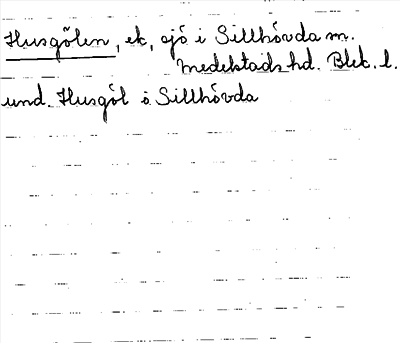 Husgölen, ek, sjö i Sillhövda sn.
Medelstads hd. Blek. l.
und. Husgöl i Sillhövda